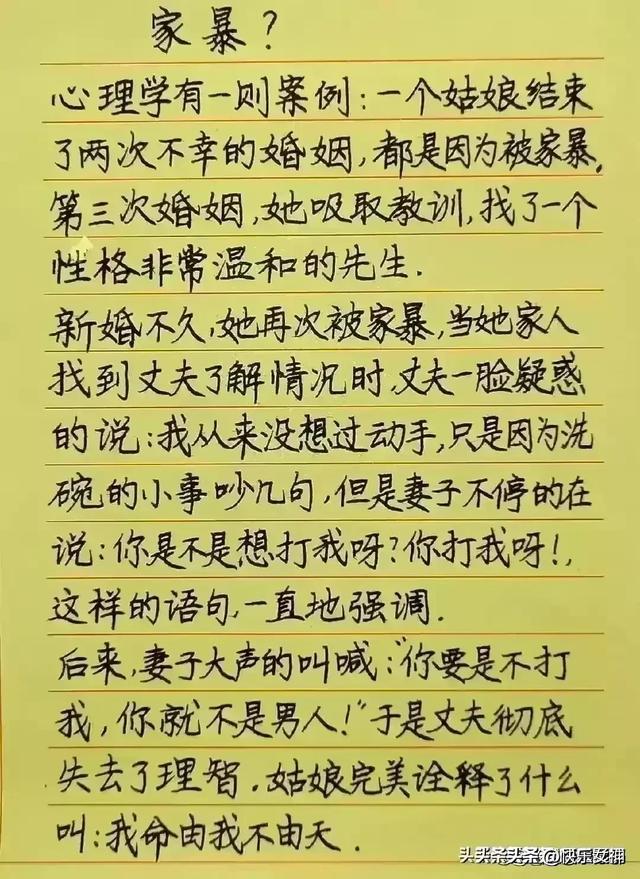 家暴?
心理学有一则案例:一个姑娘结束
了两次不幸的婚姻,都是因为被家暴,
第三次婚姻,她吸取教训,找了一个
性格非常温和的先生.
新婚不久,她再次被家暴,当她家人
找到丈夫了解情况时,丈夫一脸疑惑
的说:我从来没想过动手,只是因为洗
碗的小事吵几句,但是妻子不停的在
说:你是不是想打我呀?你打我呀!,
这样的语句,一直地强调.
后来,妻子大声的叫喊:“你要是不打
我,你就不是男人!”于是丈夫彻底
失去了理智.姑娘完美诠释了什么
叫:我命由我不由天.